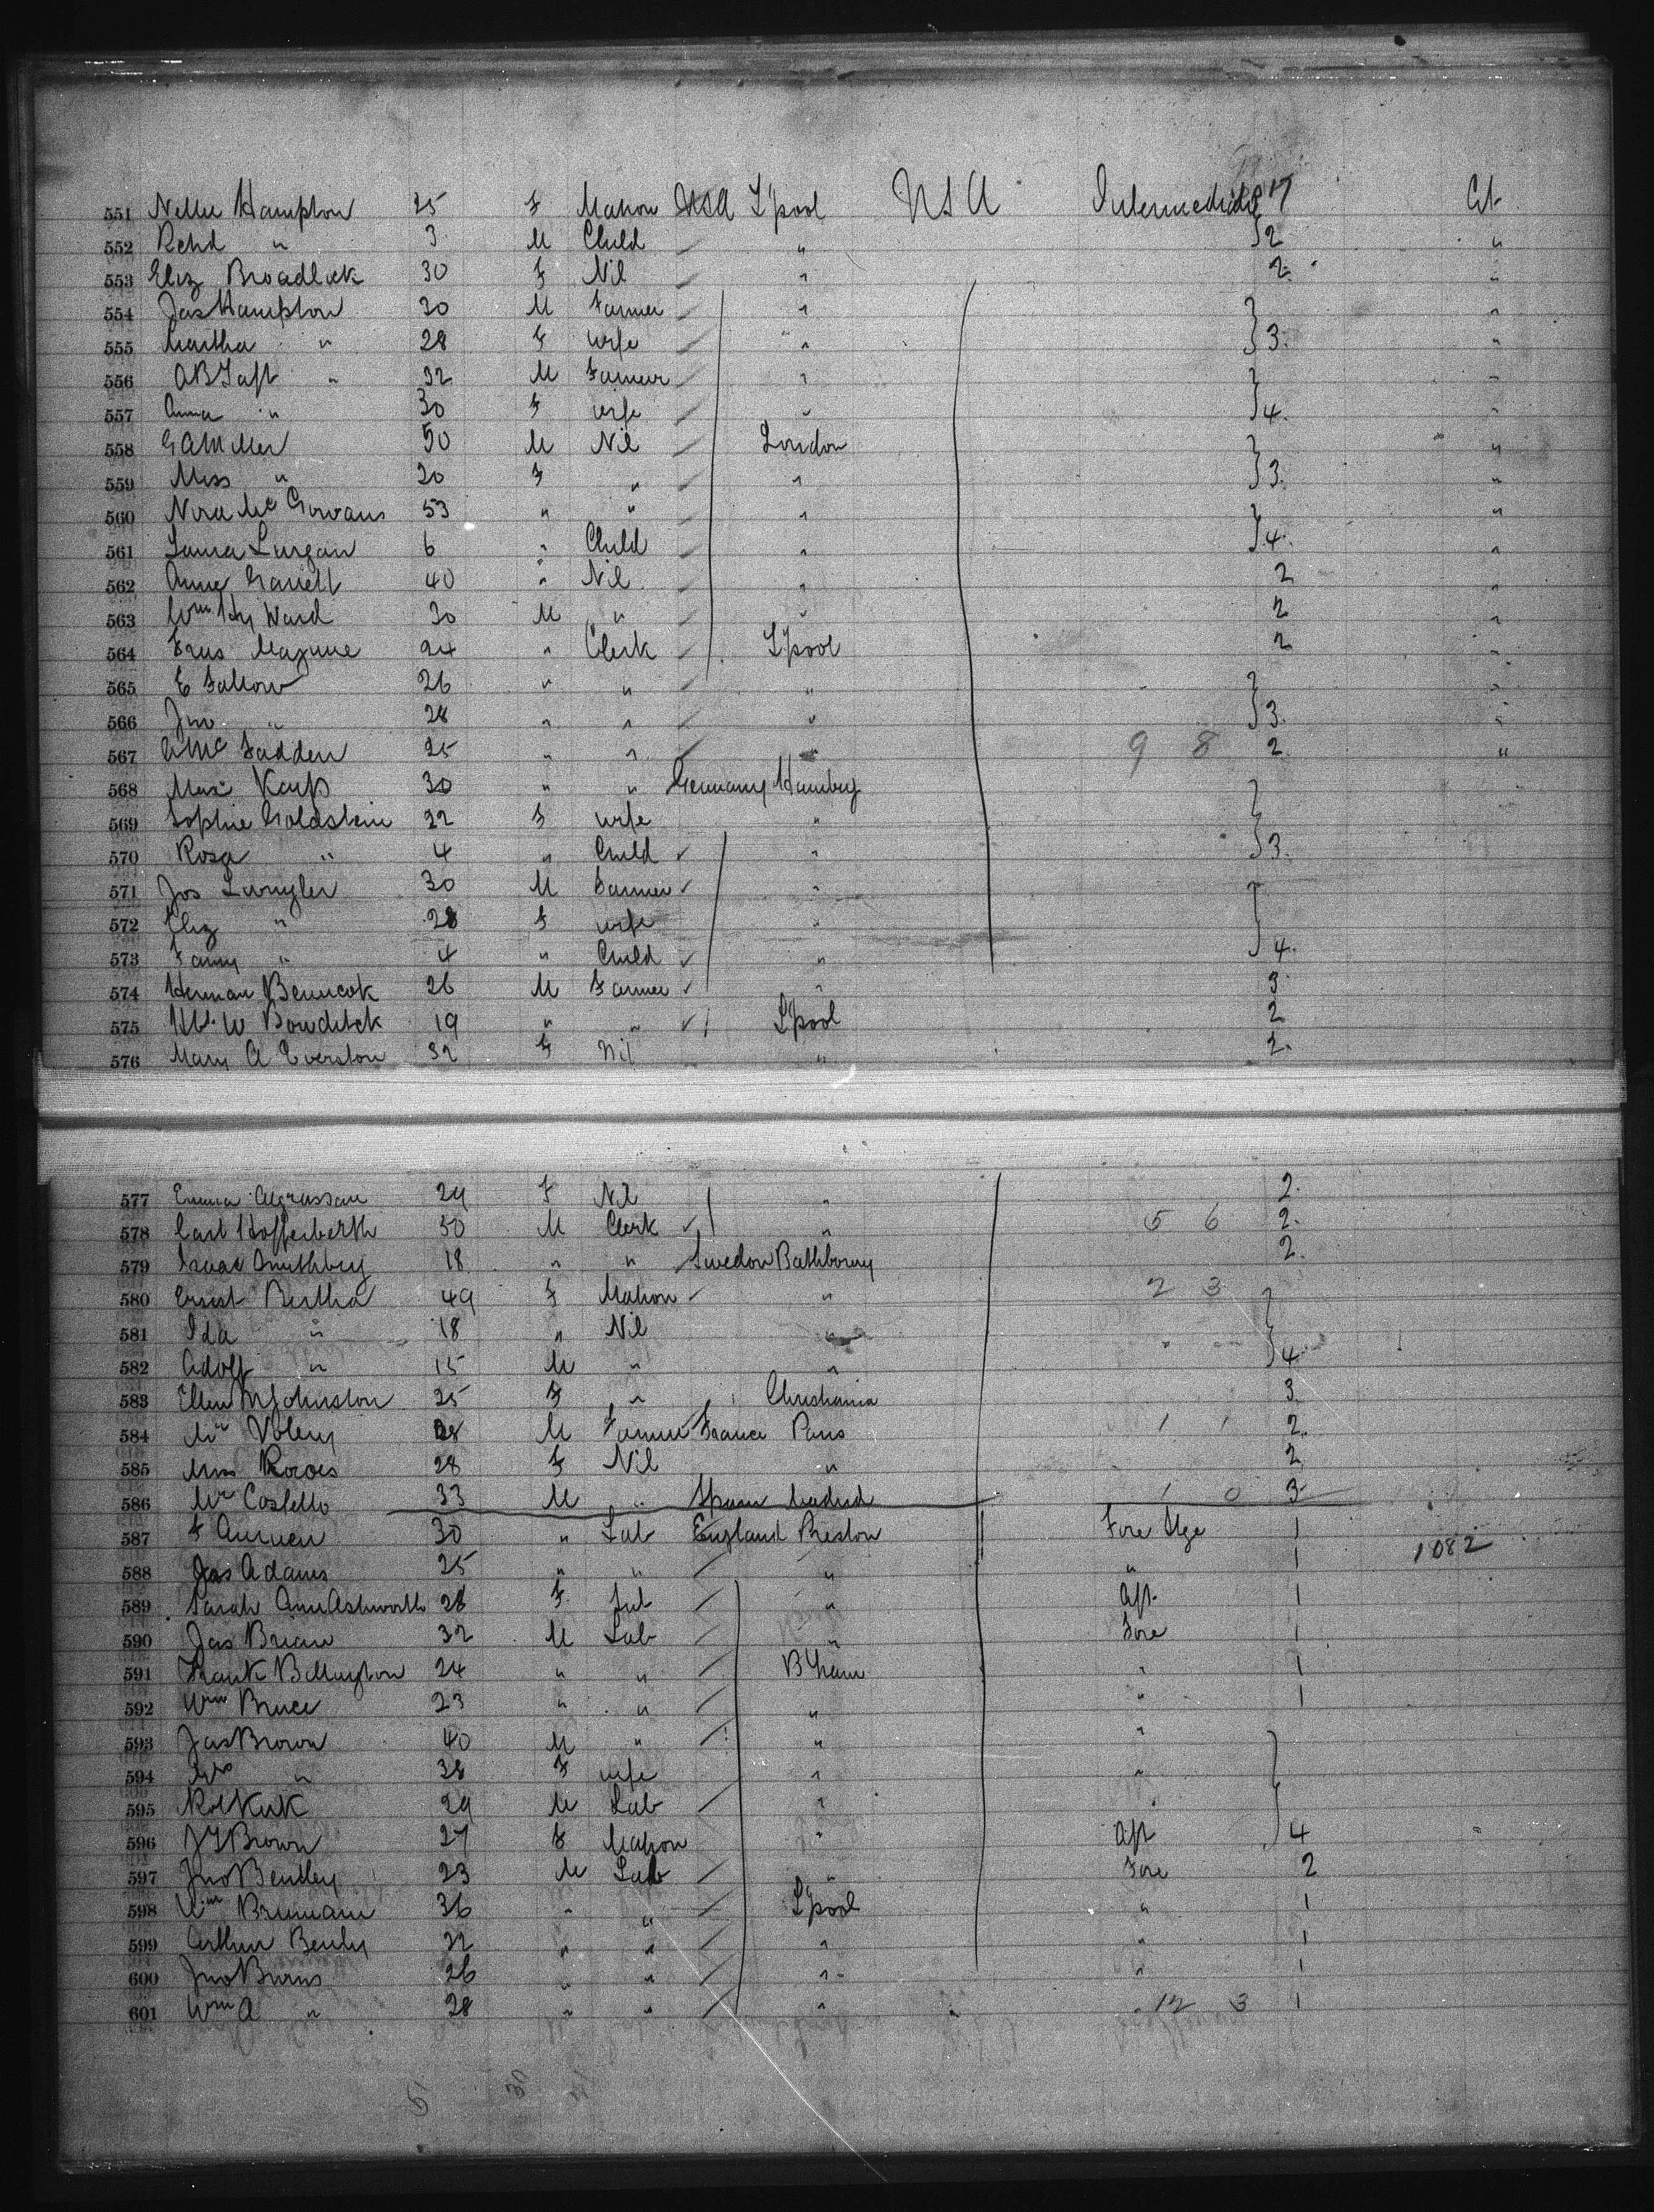 551 Nellie Hampton 25 F Matron USA L'pool USA Intermediate 17 Ct
552 Rchd " 3 M Child " 2 "
553 Eliz Broadlick 30 F Nil " 2 "
554 Jas Hampton 30 M Farmer " "
555 Martha " 28 F wife " 3 "
556 AB Taft " 32 M Farmer " "
557 Anna " 30 F wife " 4 "
558 GA Miller 50 M Nil London "
559 Miss " 20 F " " 3 "
560 Nora McGowans 53 " " " "
561 Laura Lurgan 6 " Child " 4 "
562 Anne Garrett 40 " Nil " 2 "
563 Wm Hy Ward 30 M " " 2 "
564 24 " Clerk L'pool 2 "
565 E Fallow 26 " " " "
566 Jno " 28 " " " 3 "
567 A McFadden 25 " " " 9 8 2 "
568 Max Karp 30 " " Germany Hamburg
569 Sophie Goldstein 22 F wife "
570 Rosa " 4 " Child " 3
571 Jos 30 M Farmer "
572 Eliz " 28 F wife "
573 Fanny " 4 " Child " 4
574 Herman 26 M Farmer " 3
575 W Bowditck 19 " " L'pool 2
576 Mary A Everston 32 F Nil " 2
577 Emma 24 F Nil " 2
578 Carl Hofferberth 50 M Clerk " 5 6 2
579 Isaac 18 " " Sweden 2
580 Ernst Bertha 49 F Matron " 2 3
581 Ida " 18 " Nil "
582 Adolf " 15 M " " 4
583 Ellen M Johnston 25 F " Christiania 3
584 Mr Volery 28 M Farmer France Paris 1 1 2
585 Miss 28 F Nil " 2
586 Mr Costello 33 M " Spain Madrid 1 0 3
587 F 30 " Lab England Preston Fore Stge 1
1082
588 Jas Adams 25 " " " " 1
589 Sarah Ann Ashworth 28 F " Aft 1
590 Jas Brian 32 M Lab " Fore 1
591 Frank Billington 24 " " B'ham " 1
592 Wm Bruce 23 " " " " 1
593 Jas Brown 40 M " " "
594 Mrs " 38 F wife " "
595 Rob Kirk 29 M Lab " "
596 JY Brown 27 F Matron " Aft 4
597 Jno Bentley 23 M Lab " Fore 2
598 Wm 36 " " L'pool " 1
599 Arthur 22 " " " " 1
600 Jno Burns 26 " " " " 1
601 Wm A " 28 " " " " 12 3 1